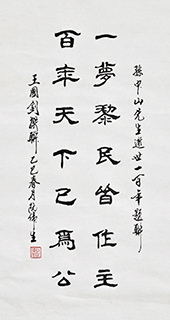 孫中山先生逝世一百年題聯
一夢黎民皆作主
百年天下已為公
王國釗撰聯 乙巳春月